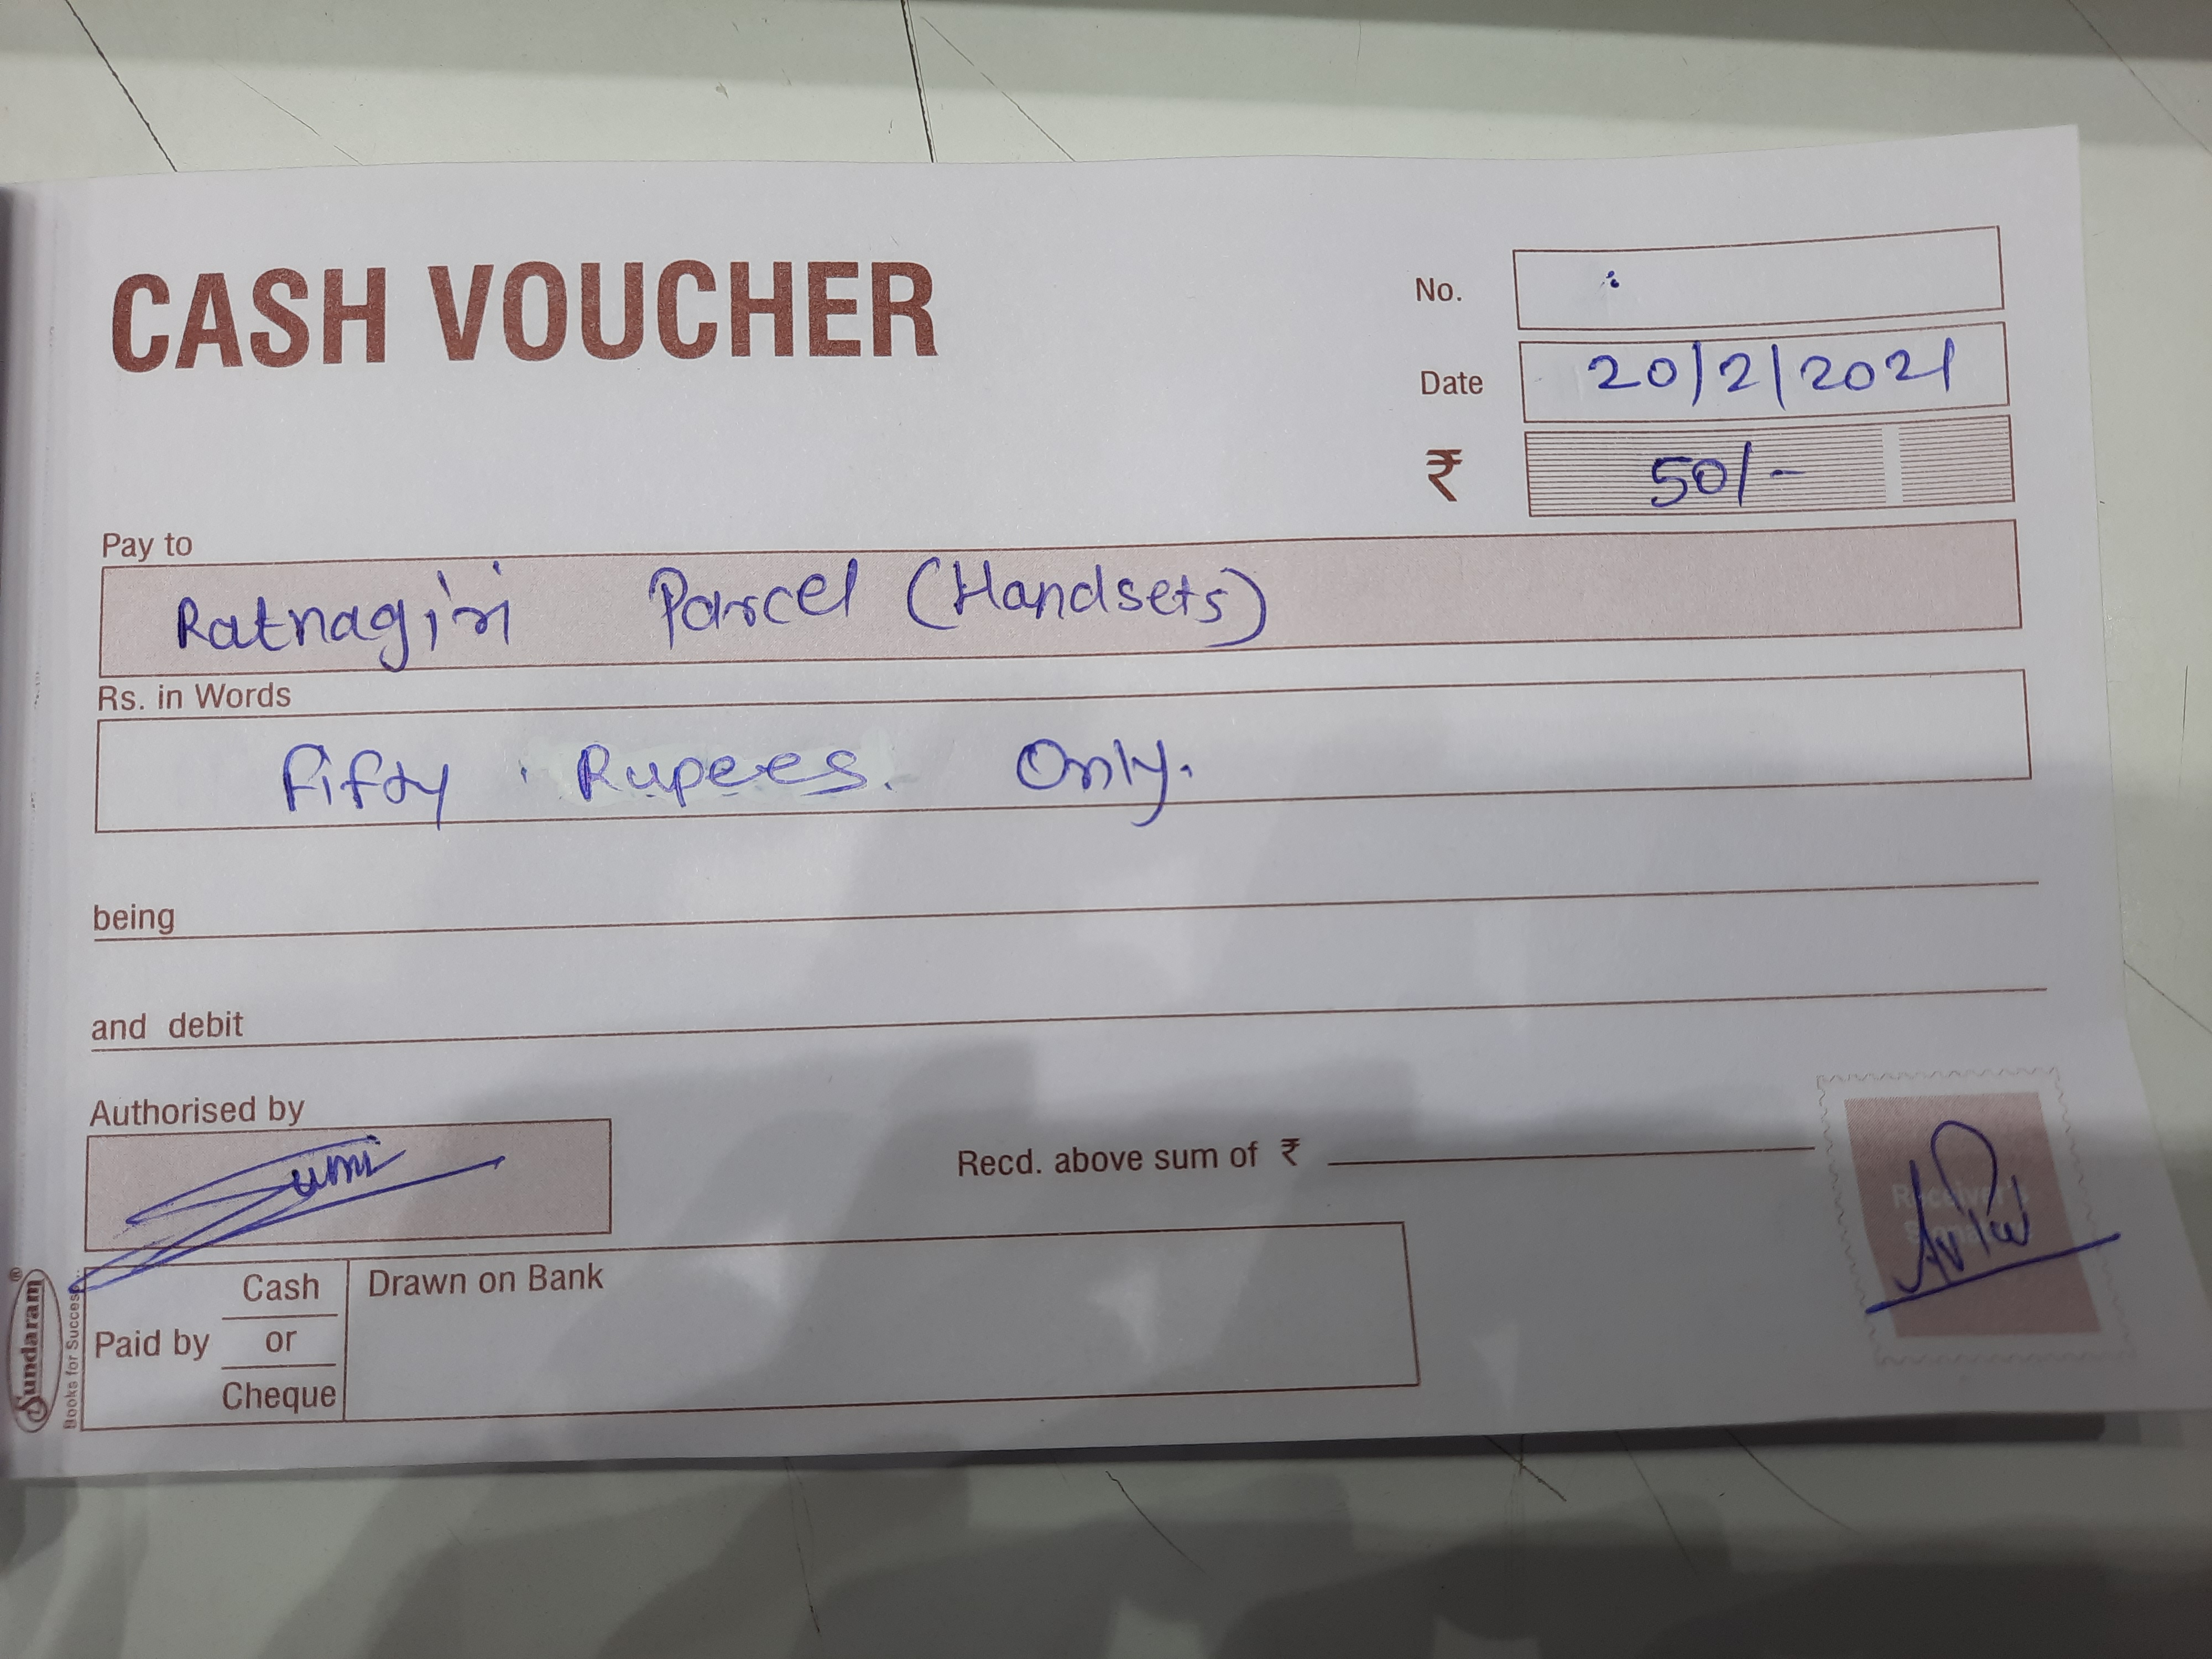 CASH VOUCHER
No.
Date 20/2/2021
₹ 50/-
Pay to
Ratnagiri Parcel (Handsets)
Rs. in Words
Fifty Rupees. Only.
being
and debit
Authorised by
Recd. above sum of ₹
Receiver's
Paid by Cash or Cheque
Drawn on Bank
Sundaram®
Books for Success